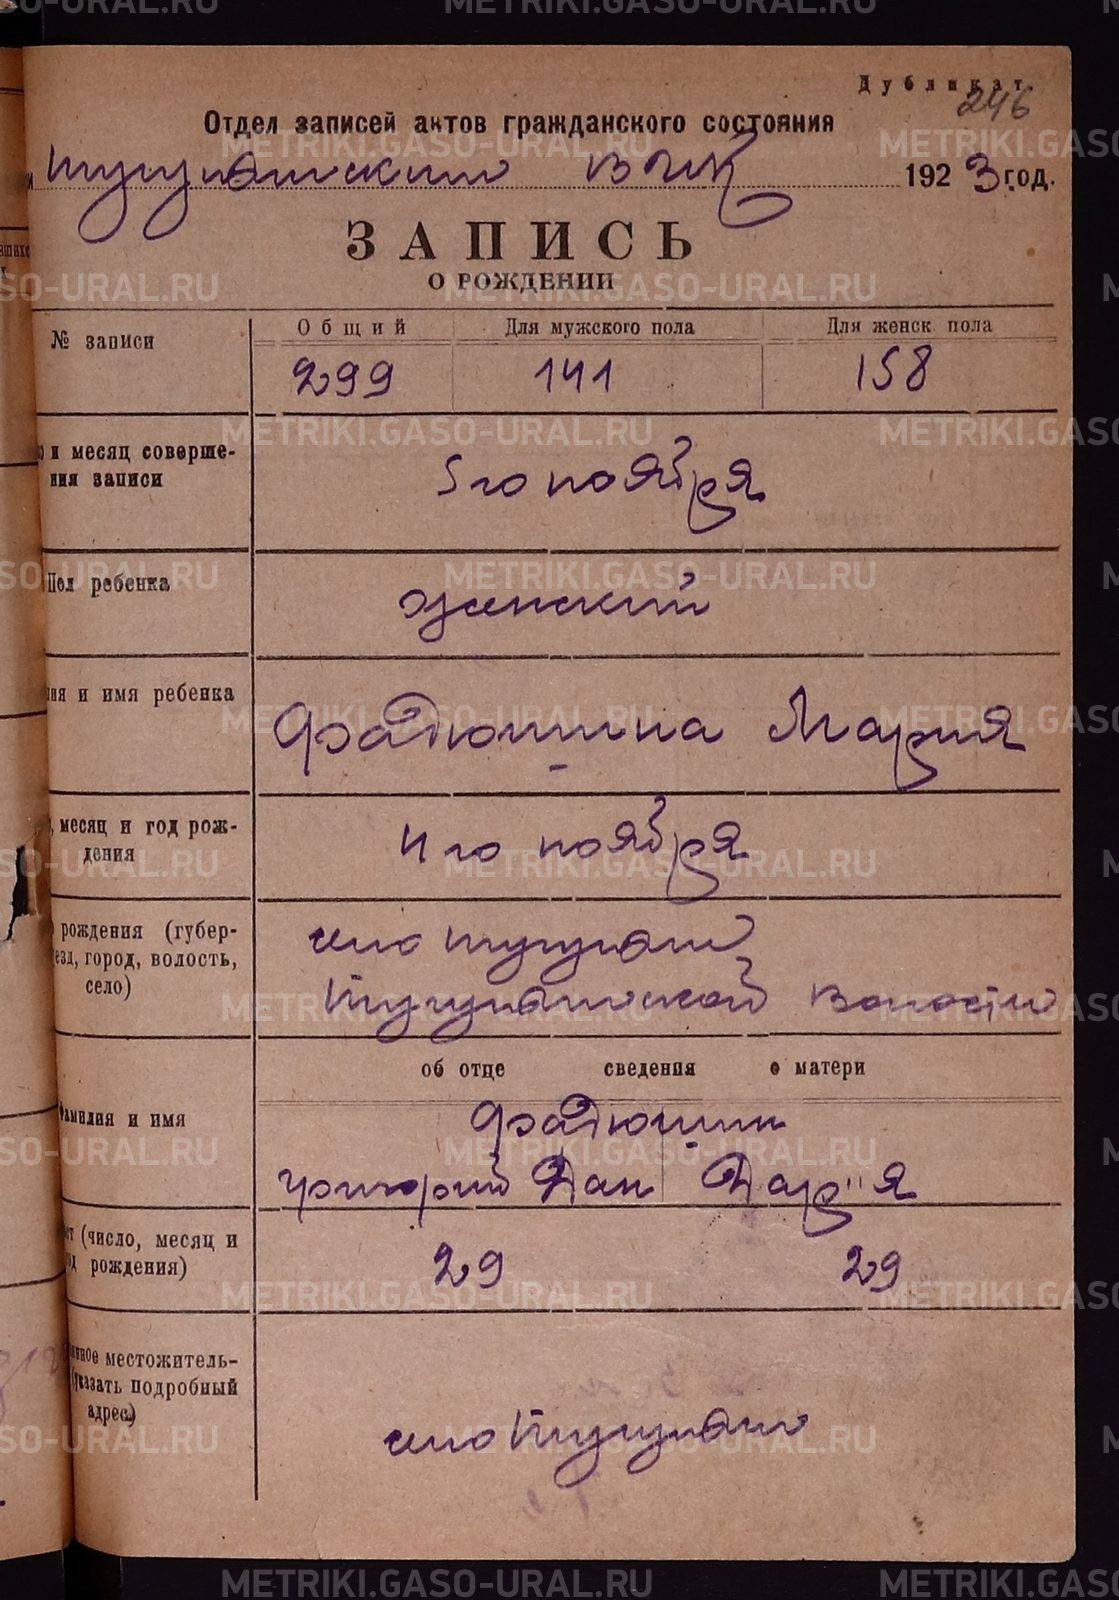 Дубликат
246
Отдел записей актов гражданского состояния
Тугулымским ВИК 1923 год.
ЗАПИСЬ
О РОЖДЕНИИ
№ записи
Общий Для мужского пола Для женск. пола
299 141 158
и месяц соверше-
ния записи
5го ноября
Пол ребенка
женский
ия и имя ребенка
Мария
месяц и год рож-
дения
4го ноября
рождения (губер-
езд, город, волость,
село)
село
волости
об отце сведения о матери
Фамилия и имя
Григорий Дан Дарья
(число, месяц и
рождения)
29 29
местожитель-
(указать подробный
адрес)
село
METRIKI.GASO-URAL.RU